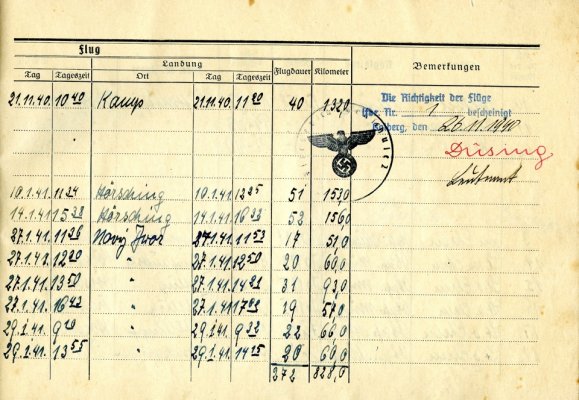 Flug
Landung
Tag Tageszeit Ort Tag Tageszeit Flugdauer Kilometer Bemerkungen
21.11.40. 10 40 Kamp 21.11.40. 11 20 40 1320
Die Richtigkeit der Flüge
Nr. 1 bescheinigt
den 26.11.1940
Düsing
Leutnant
10.1.41. 11 34 Hörsching 10.1.41. 12 25 51 1530
14.1.41. 15 38 Hörsching 14.1.41. 52 1560
27.1.41. 11 36 Novy Dvor 27.1.41. 11 53 17 510
27.1.41. 12 30 " 27.1.41. 12 50 20 600
27.1.41. 13 50 " 27.1.41. 14 21 31 930
27.1.41. 16 43 " 27.1.41. 19 570
29.1.41. 9 10 " 29.1.41. 9 32 22 660
29.1.41. 13 55 " 29.1.41. 14 15 20 600
272 828.0